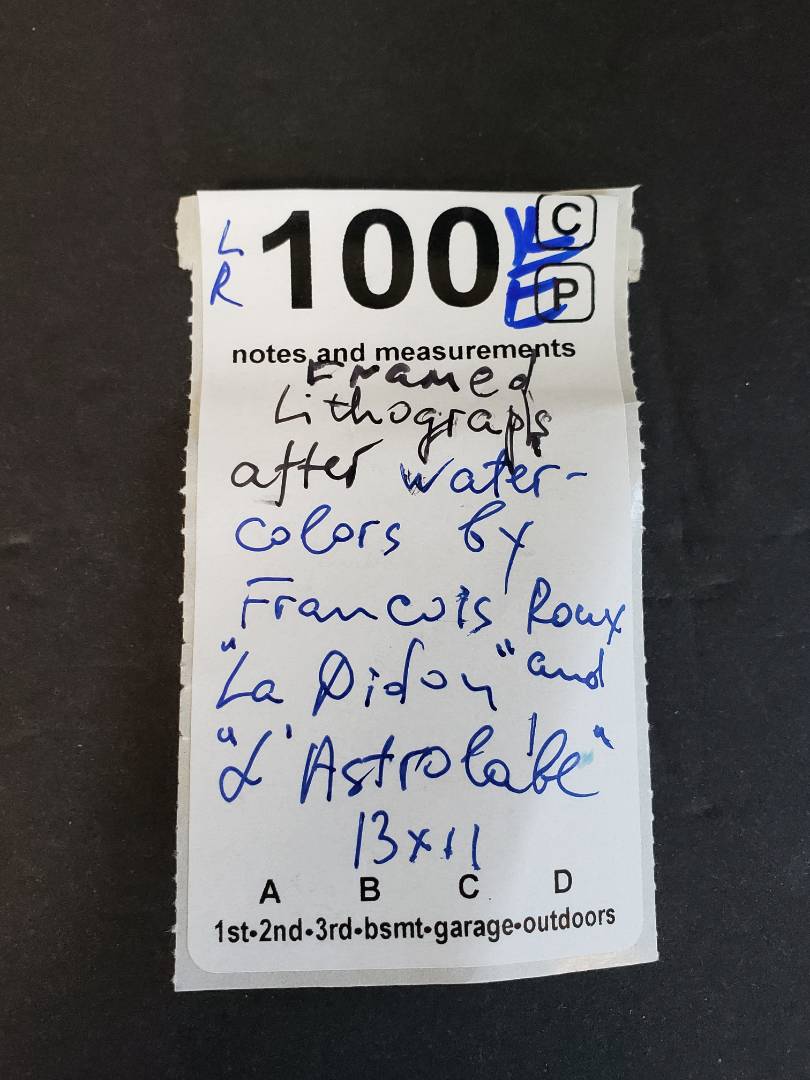 L
R
100
C
P
notes and measurements
Framed
Lithographs
after water-
colors by
Francois Roux
"La Didon" and
"L'Astrolabe"
13x11
A B C D
1st•2nd•3rd•bsmt•garage•outdoors